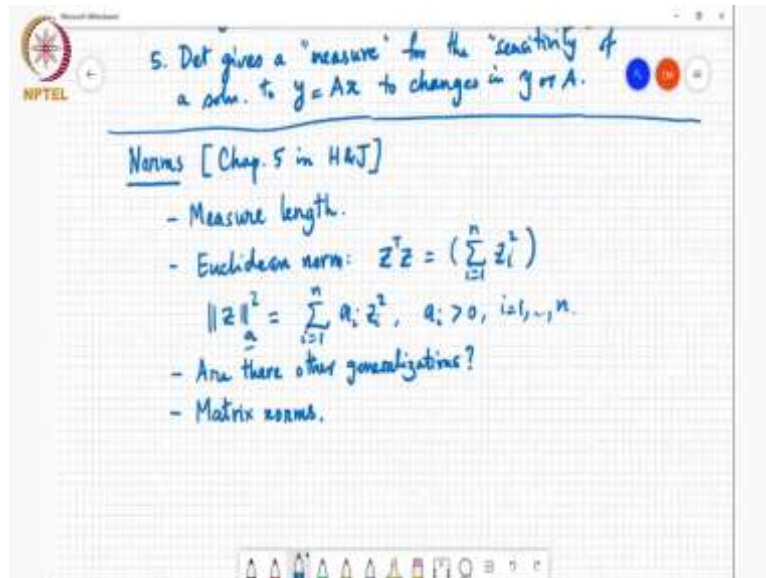 Microsoft Whiteboard
NPTEL
5. Det gives a "measure" for the "sensitivity" of
a soln. to y = Ax to changes in y or A.
Norms [Chap. 5 in H&J]
- Measure length.
- Euclidean norm: zᵀz = (∑ᵢ₌₁ⁿ zᵢ²)
‖z‖²ₐ = ∑ᵢ₌₁ⁿ aᵢ zᵢ², aᵢ > 0, i=1,..,n.
- Are there other generalizations?
- Matrix norms.